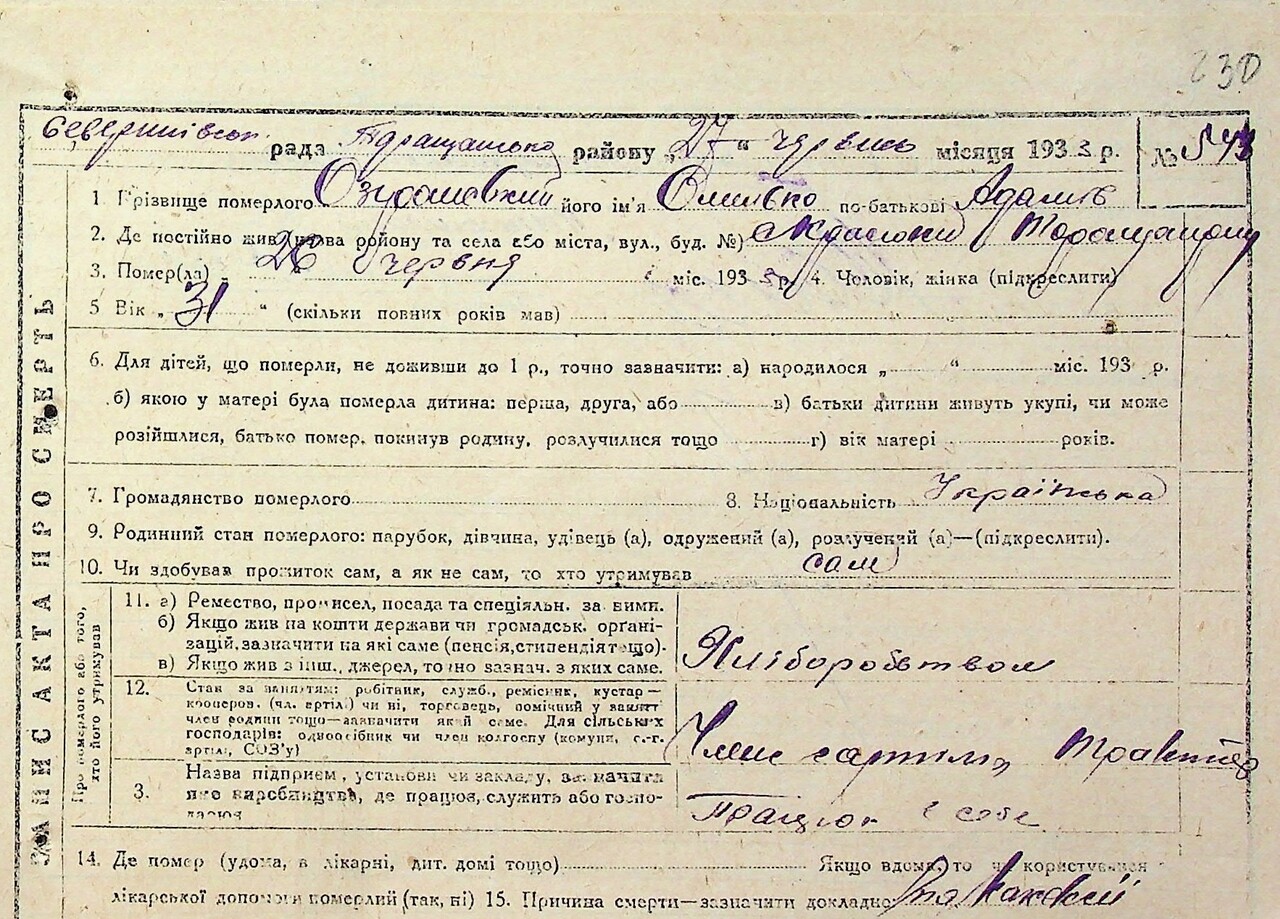 230
рада району „27“ місяця 1933 р. №
1. Прізвище померлого його ім'я по-батькові Адамів
2. Де постійно жив (назва району та села або міста, вул., буд. №)
3. Помер(ла) 26 червня міс. 1933 р. 4. Чоловік, жінка (підкреслити)
5 Вік „31“ (скільки повних років мав)
6. Для дітей, що померли, не доживши до 1 р., точно зазначити: а) народилося „ “ міс. 193 р.
б) якою у матері була померла дитина: перша, друга, або в) батьки дитини живуть укупі, чи може
розійшлися, батько помер, покинув родину, розлучилися тощо г) вік матері років.
7. Громадянство померлого 8. Національність Українська
9. Родинний стан померлого: парубок, дівчина, удівець (а), одружений (а), розлучений (а)—(підкреслити).
10. Чи здобував прожиток сам, а як не сам, то хто утримував сам
ЗАПИС АКТА ПРО СМЕРТЬ
Про померлого або того, хто його утримував
11. а) Ремество, промисел, посада та спеціяльн. за ними.
б) Якщо жив на кошти держави чи громадськ. орґані-
зацій, зазначити на які саме (пенсія, стипендія тощо).
в) Якщо жив з інш. джерел, точно зазнач. з яких саме.
Хліборобством
12. Стан за заняттям: робітник, служб., ремісник, кустар—
кооперов. (чл. артілі) чи ні, торговець, помічний у занятті
член родини тощо—зазначити який саме. Для сільських
господарів: одноосібник чи член колгоспу (комуни, с.-г.
артілі, СОЗ'у)
Член
3. Назва підприєм., установи чи закладу, зазначити
про виробництва, де працює, служить або госпо-
дарює
14. Де помер (удома, в лікарні, дит. домі тощо) Якщо вдома, то чи користувався
лікарської допомоги померлий (так, ні) 15. Причина смерти—зазначити докладно: